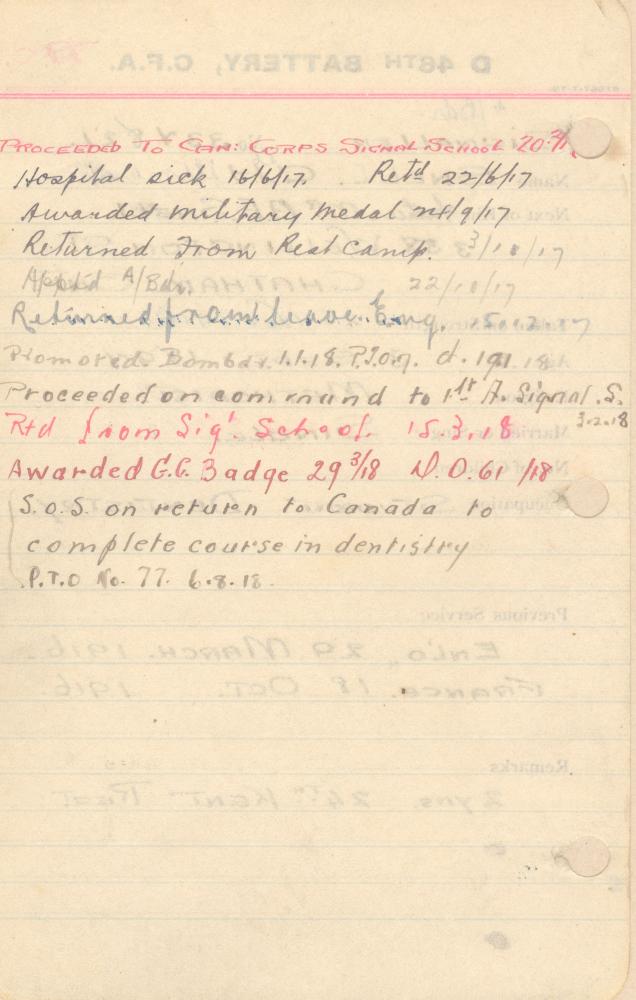 PROCEEDED TO CAN: CORPS SIGNAL SCHOOL 20.
Hospital sick 16/6/17. Ret'd 22/6/17
Awarded Military Medal 24/9/17
Returned From Rest Camp. 3/10/17
App't'd A/Bdr. 22/10/17
Returned from leave. Eng. 15.12.17
Promoted. Bombdr. 1.1.18.
Proceeded on command to 1st A. Signal .S.
3.2.18
Rtd from Sig'. School. 15.3.18
Awarded G.C. Badge 29 3/18 D.O.61 /18
S.O.S. on return to Canada to
complete course in dentistry
P.T.O No. 77. 6.8.18.